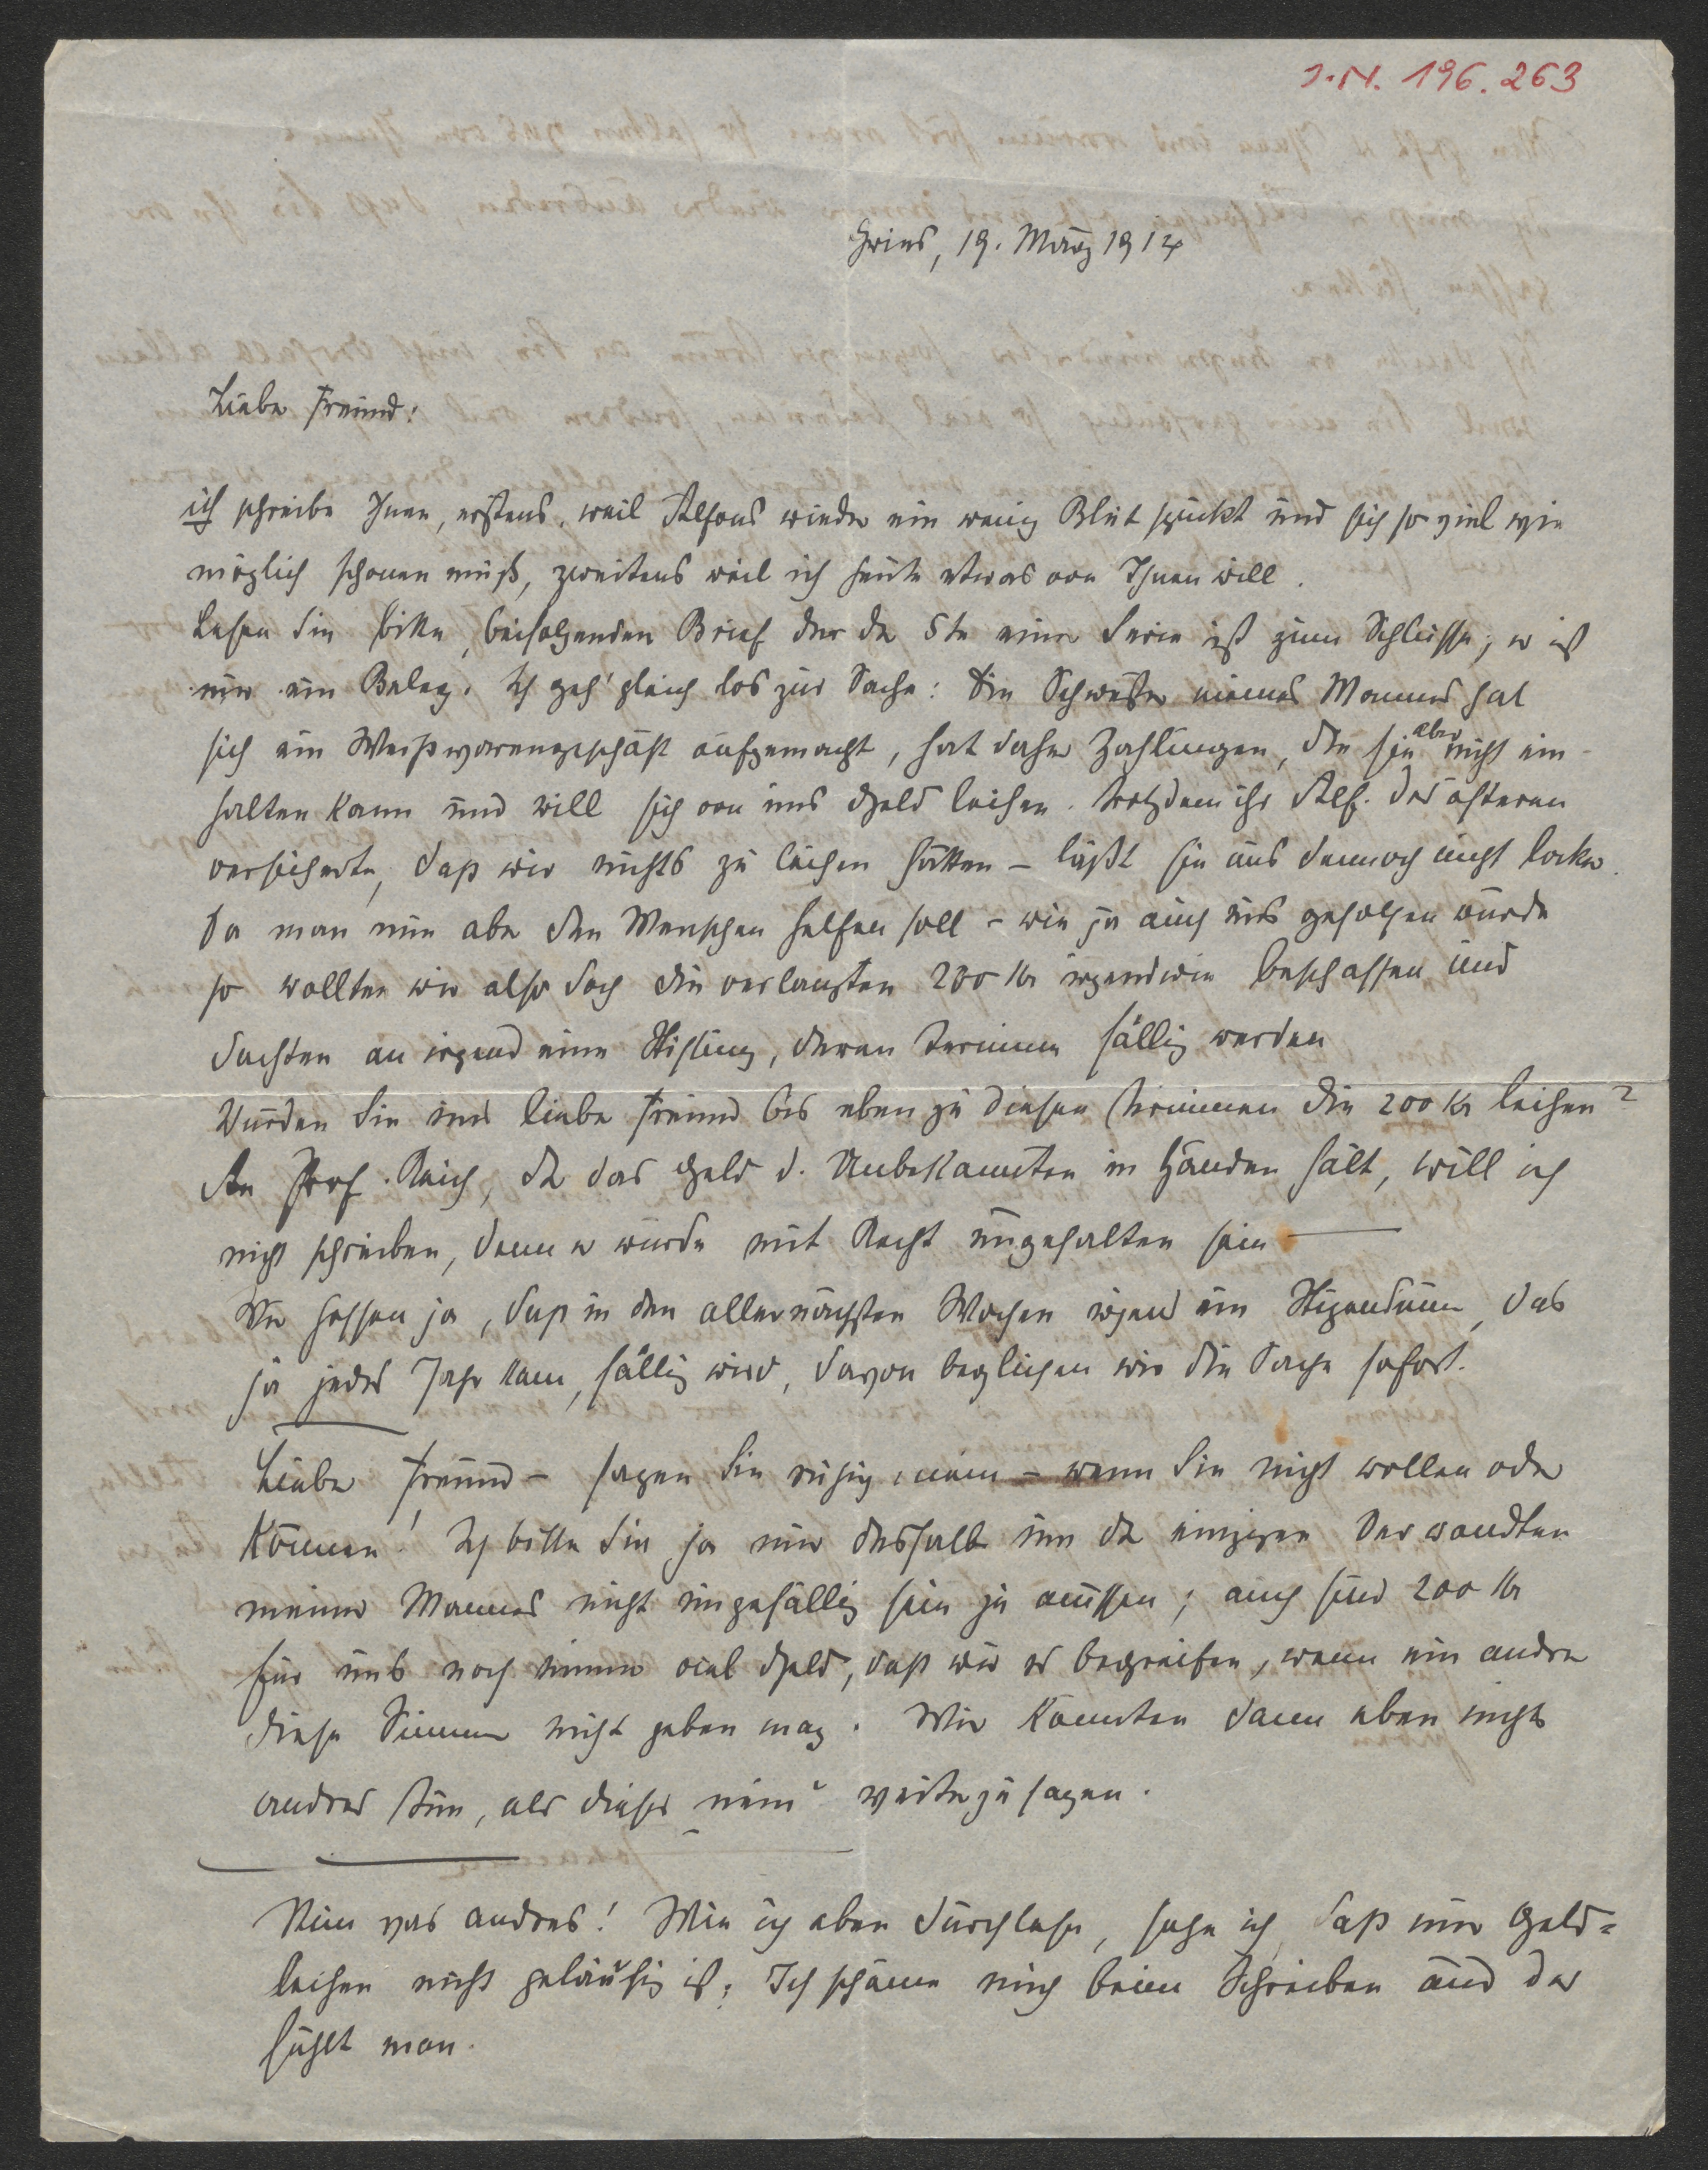 J.N. 196.263
Gries, 19. März 1914
Lieber Freund!
ich schreibe Ihnen, erstens, weil Alfons wieder ein wenig Blut spuckt und sich so viel wie
möglich schonen muß, zweitens weil ich heute etwas von Ihnen will.
Lesen Sie bitte, beifolgenden Brief der der 5te einer Serie ist zum Schlusse; er ist
nur ein Beleg. Ich geh' gleich los zur Sache: Die Schwester meines Mannes hat
sich ein Weißwarengeschäft aufgemacht, hat daher Zahlungen, die sie aber nicht ein-
halten kann und will sich von uns Geld leihen. Trotzdem ihr Alf. des öfteren
versicherte, daß wir nichts zu leihen hätten – läßt sie uns dennoch nicht locker.
Da man nun aber den Menschen helfen soll – wie ja auch uns geholfen wurde
so wollten wir also doch die verlangten 200 Kr irgendwie beschaffen und
dachten an irgend eine Stiftung, deren Termine fällig werden
Würden Sie uns lieber Freund bis eben zu diesen Terminen die 200 Kr leihen?
An Prof. Reich, der das Geld d. Unbekannten in Händen hält, will ich
nicht schreiben, denn er würde mit Recht ungehalten sein —
Wir hoffen ja, daß in den allernächsten Wochen irgend ein Stipendium, das
ja jedes Jahr kam, fällig wird, davon beglichen wir die Sache sofort.
Lieber Freund – sagen Sie ruhig „nein – wenn Sie nicht wollen oder
können! Ich bitte Sie ja nur deshalb um der einzigen Verwandten
meines Mannes nicht ungefällig sein zu müssen; auch sind 200 Kr
für uns noch immer viel Geld, daß wir es begreifen, wenn ein andrer
diese Summe nicht geben mag. Wir könnten dann eben nichts
andres tun, als dieses „nein“ weiterzusagen.
Nun was andres! Wie ich eben durchlese, sehe ich, daß mir Geld=
leihen nicht geläufig ist; Ich schäme mich beim Schreiben und das
fühlt man.